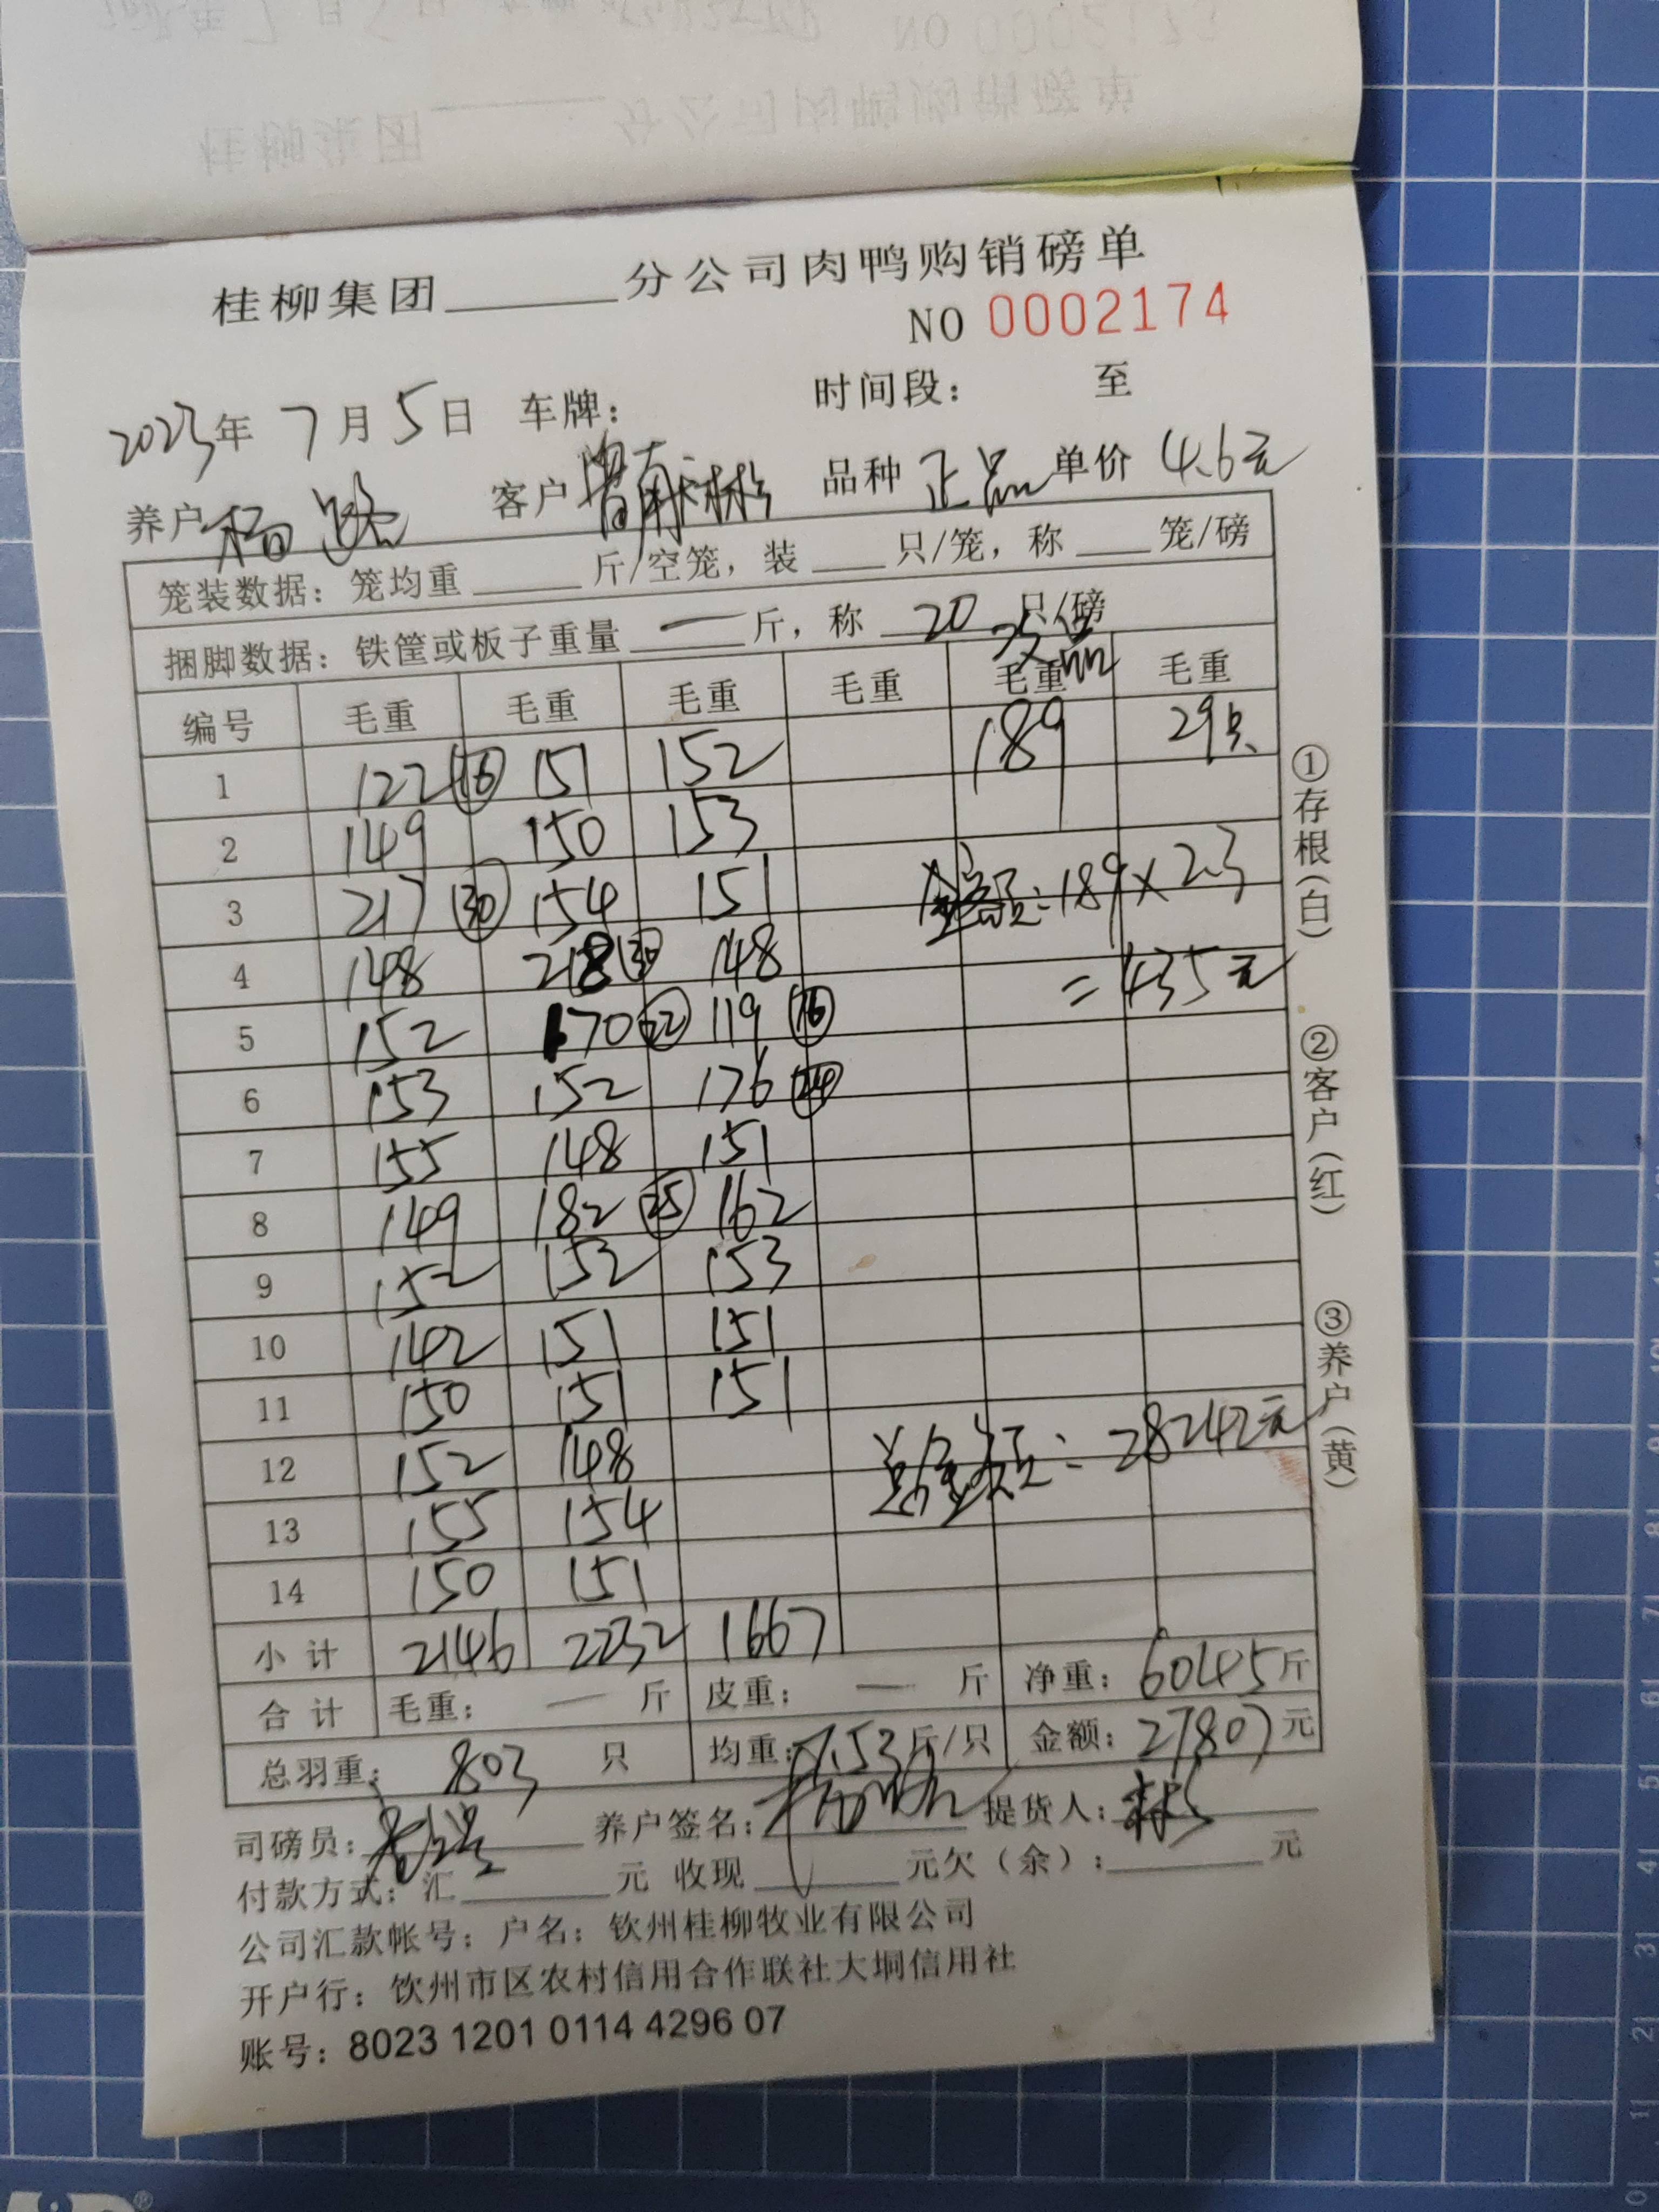 桂柳集团______分公司肉鸭购销磅单
NO 0002174
2023年 7月 5日 车牌： 时间段： 至
养户 杨 客户 曾 品种 正品 单价 4.6元
笼装数据：笼均重____斤/空笼，装___只/笼，称___笼/磅
捆脚数据：铁筐或板子重量 一 斤，称 20 只/磅
次品
编号 毛重 毛重 毛重 毛重 毛重 毛重
1 122 (16) 151 152 189 29只
2 149 150 153
3 217 (30) 154 151 金额：189×2.3
4 148 218 (30) 148 =435元
5 152 170 (22) 119 (16)
6 153 152 176 (24)
7 155 148 151
8 149 182 (25) 162
9 152 152 153
10 142 151 151
11 150 151 151
12 152 148 总金额：28242元
13 155 154
14 150 151
小计 2146 2232 1667
合计 毛重： 一 斤 皮重： 一 斤 净重：6045斤
总羽重： 803 只 均重：7.53斤/只 金额：27807元
司磅员： 养户签名： 提货人：
付款方式：汇______元 收现______元欠（余）：______元
公司汇款帐号：户名：钦州桂柳牧业有限公司
开户行：钦州市区农村信用合作联社大垌信用社
账号：8023 1201 0114 4296 07
①存根（白）
②客户（红）
③养户（黄）